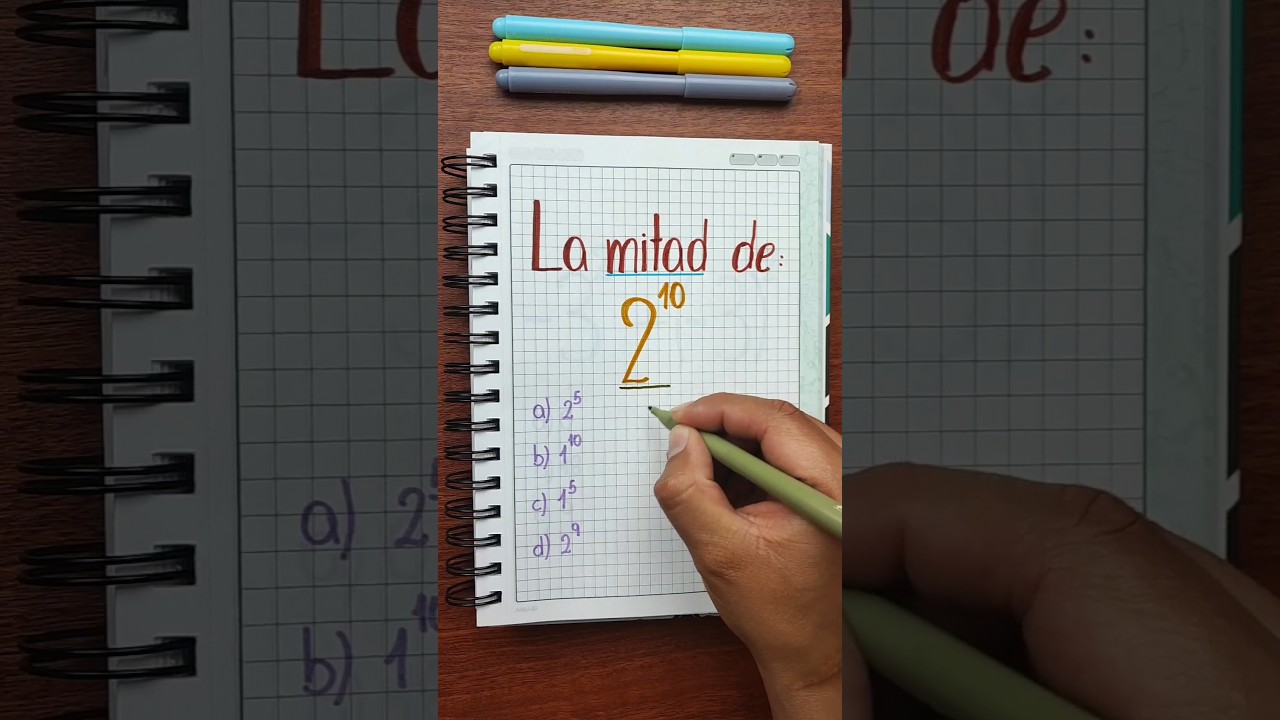 La mitad de:
2¹⁰
a) 2⁵
b) 1¹⁰
c) 1⁵
d) 2⁹